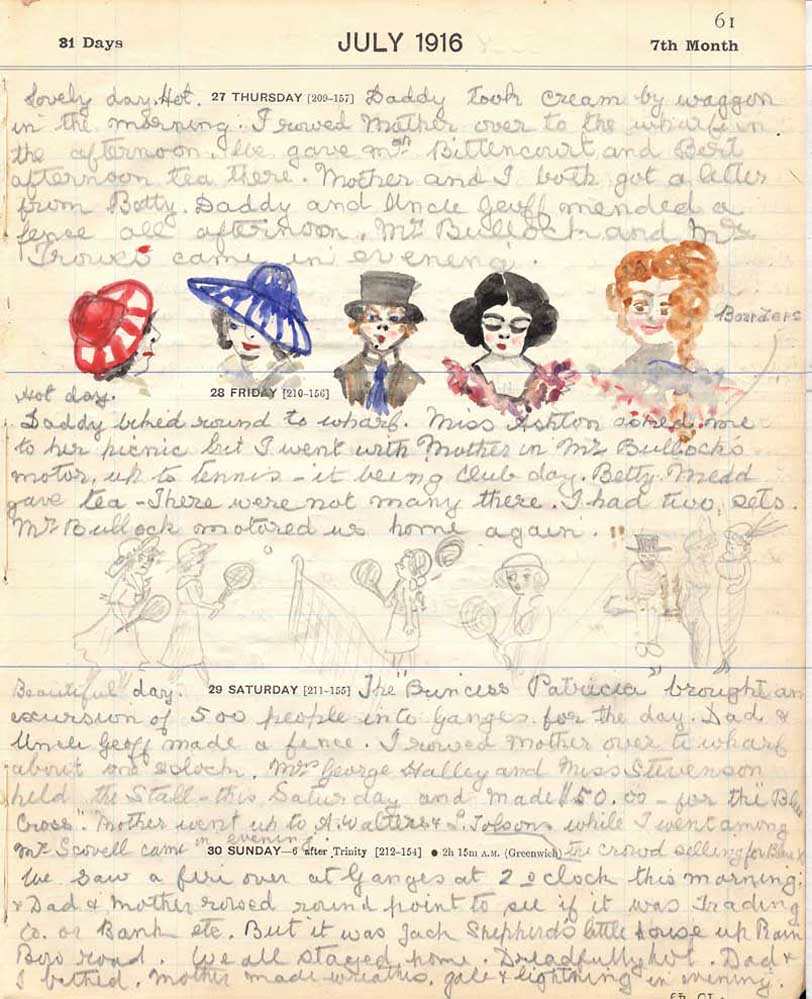 61
31 Days JULY 1916 7th Month
Lovely day. Hot. 27 THURSDAY [209-157] Daddy took cream by waggon
in the morning. I rowed Mother over to the wharf in
the afternoon. We gave Mrs Bittencourt and Bert
afternoon tea there. Mother and I both got a letter
from Betty. Daddy and Uncle Geoff mended a
fence all afternoon. Mr Bullock and Mr
came in evening.
Boarders
Hot day. 28 FRIDAY [210-156]
Daddy biked round to wharf. Miss Ashton asked me
to her picnic but I went with Mother in Mr Bullock's
motor, up to tennis - it being club day. Betty Medd
gave tea - There were not many there. I had two sets.
Mr Bullock motored us home again.
Beautiful day. 29 SATURDAY [211-155] The "Princess Patricia" brought an
excursion of 500 people into Ganges for the day. Dad &
Uncle Geoff made a fence. I rowed Mother over to wharf
about one oclock. Mrs George Halley and Miss Stevenson
held the Stall - this Saturday and made $50.00 - for the "Blue
Cross". Mother went up to A. Walters & S. Tolsons while I went among
Mr Scovell came in evening. 30 SUNDAY—6 after Trinity [212-154] ● 2h 15m A.M. (Greenwich) the crowd selling for Blue X
We saw a fire over at Ganges at 2 oclock this morning;
& Dad & Mother rowed round point to see if it was Trading
Co. or Bank etc. But it was Jack Shepherd's little house up Rain
Bow road. We all stayed home. Dreadfully hot. Dad &
I bathed. Mother made wreaths, gale & lightning in evening.